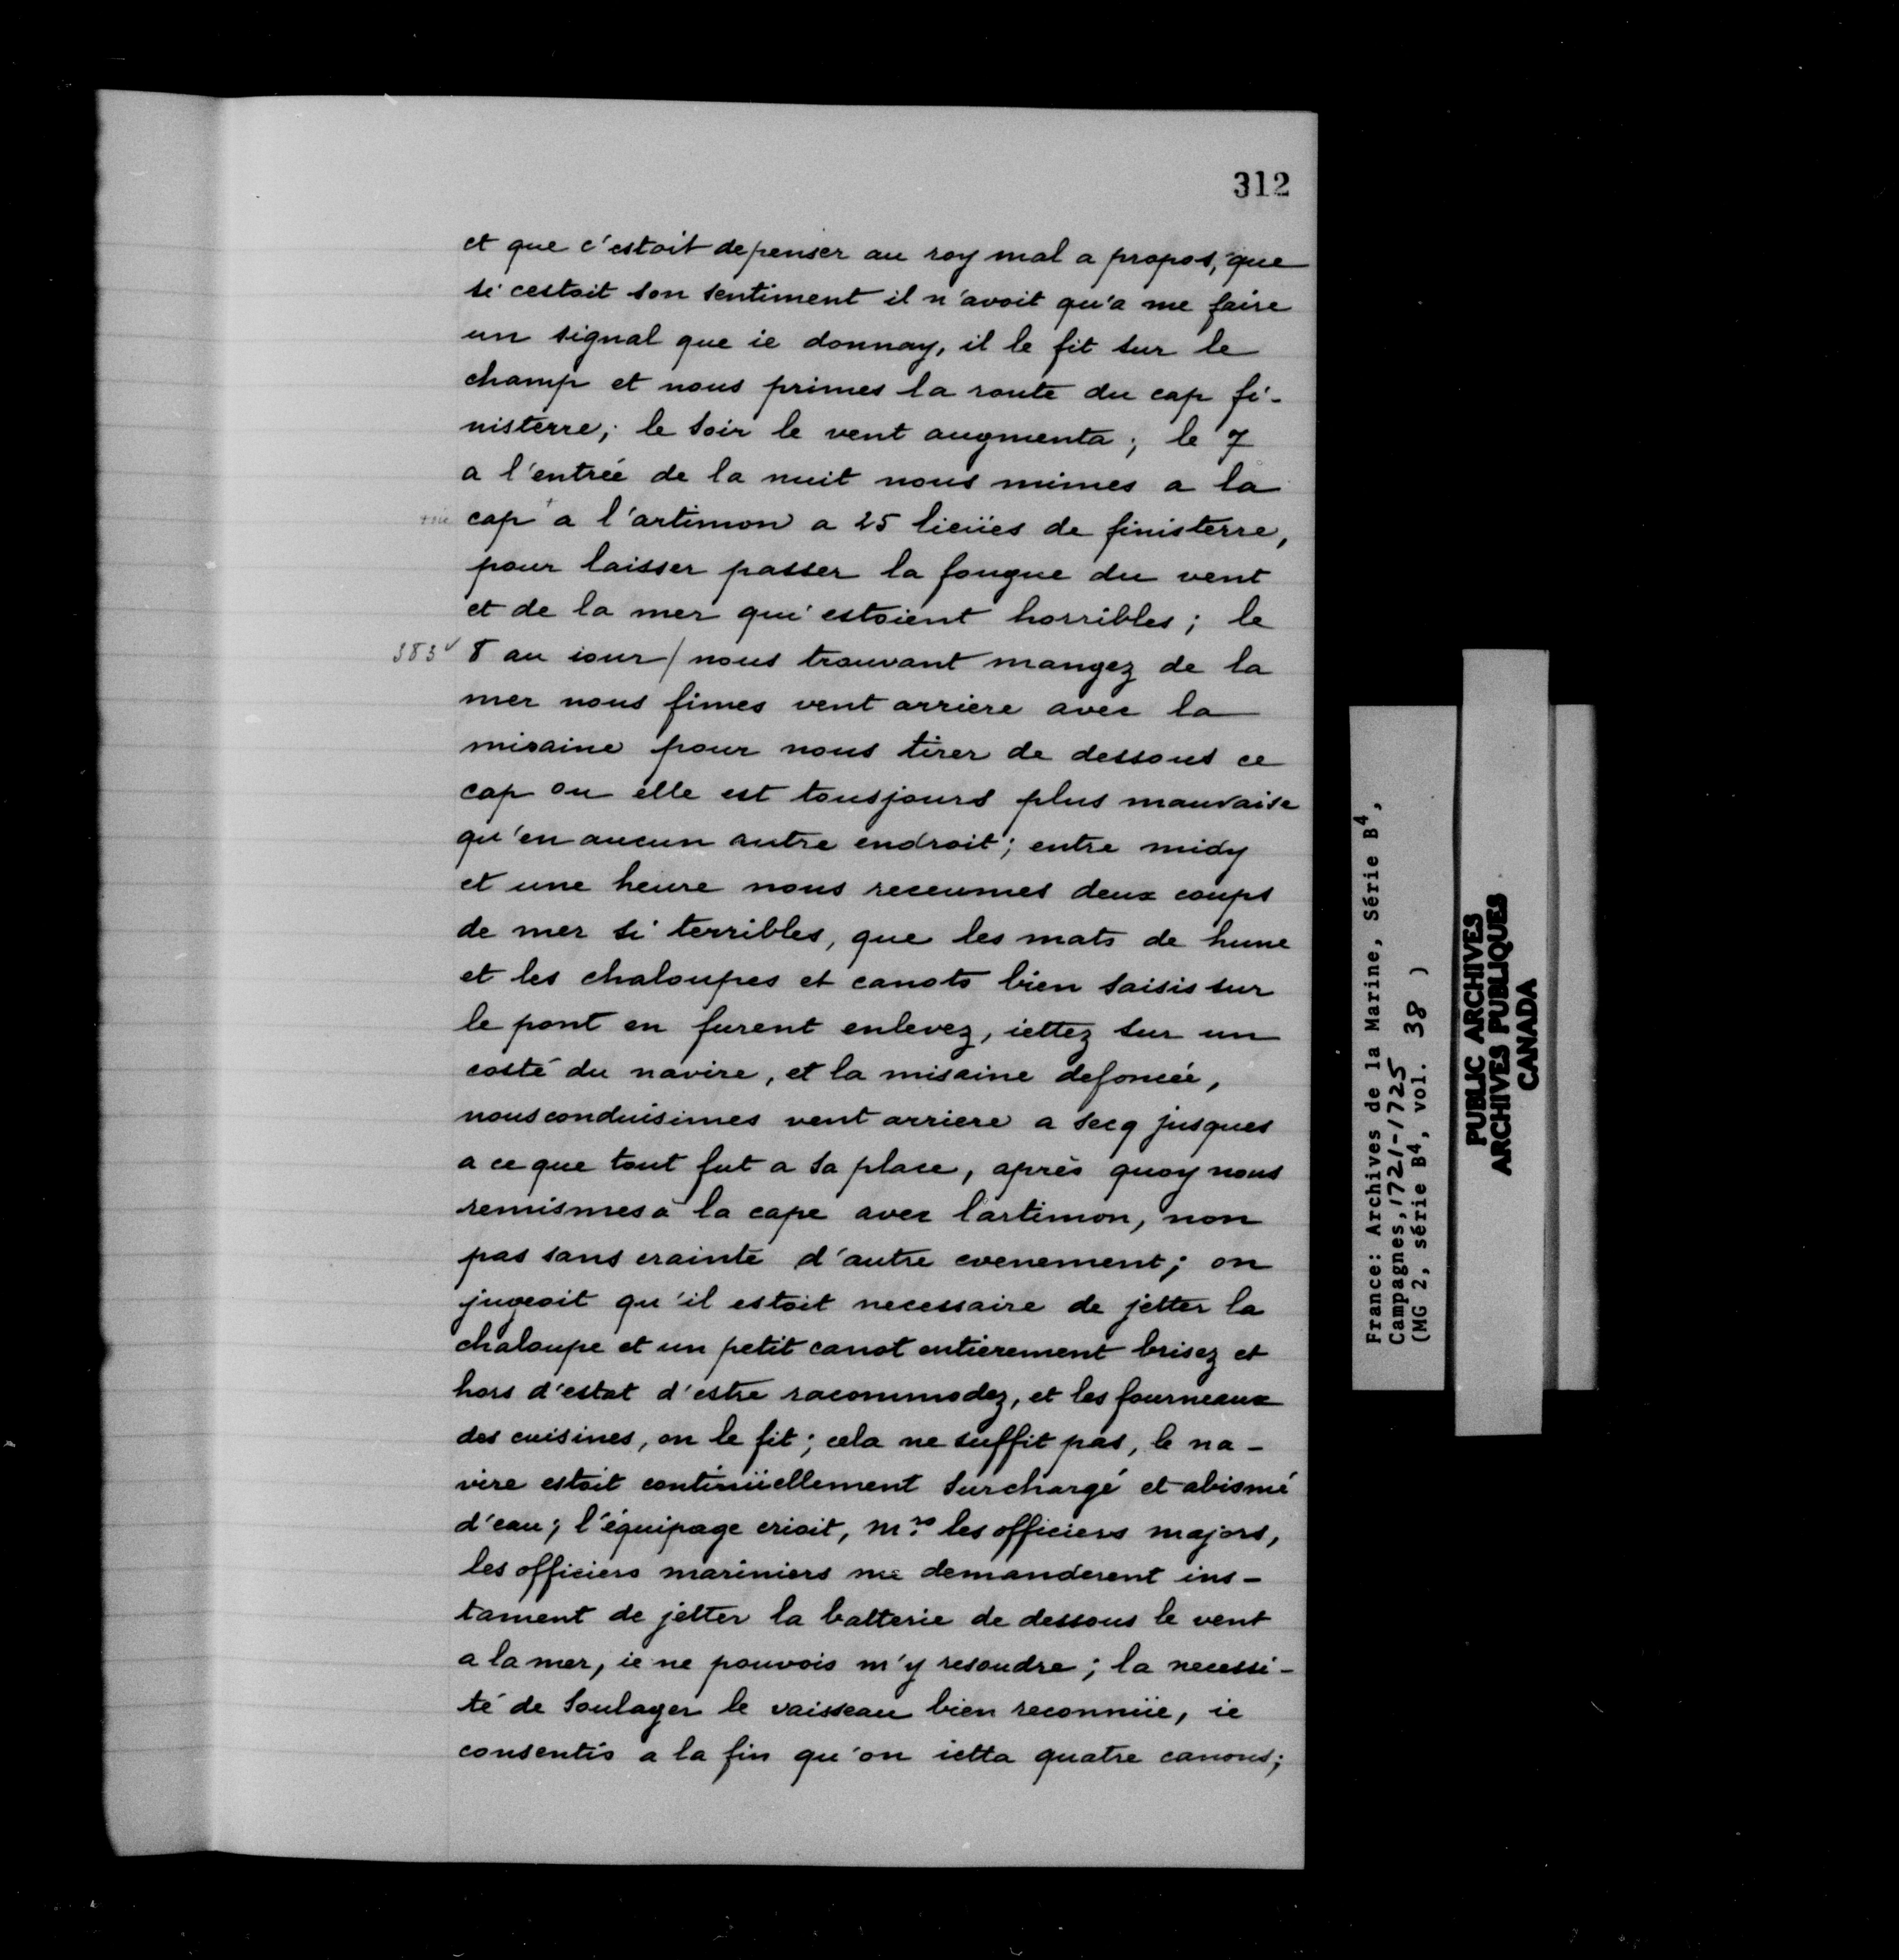 312
et que c'estoit depenser au roy mal a propos, que
si cestoit son sentiment il n'avoit qu'a me faire
un signal que ie donnay, il le fit sur le
champ et nous primes la route du cap fi-
nisterre; le soir le vent augmenta; le 7
a l'entrée de la nuit nous mimes a la
cap+ a l'artimon a 25 lieües de finisterre,
pour laisser passer la fougue du vent
et de la mer qui estoient horribles; le
383v 8 au iour / nous trouvant mangez de la
mer nous fimes vent arriere avec la
misaine pour nous tirer de dessous ce
cap ou elle est tousjours plus mauvaise
qu'en aucun autre endroit; entre midy
et une heure nous receumes deux coups
de mer si terribles, que les mats de hune
et les chaloupes et canots bien saisis sur
le pont en furent enlevez, iettez sur un
costé du navire, et la misaine defoncée,
nous conduisimes vent arriere a secq jusques
a ce que tout fut a sa place, après quoy nous
remismes à la cape avec l'artimon, non
pas sans crainte d'autre evenement; on
jugeoit qu'il estoit necessaire de jetter la
chaloupe et un petit canot entierement brisez et
hors d'estat d'estre racommodez, et les fourneaux
des cuisines, on le fit; cela ne suffit pas, le na-
vire estoit continüellement surchargé et abismé
d'eau; l'équipage crioit, mrs les officiers majors,
les officiers mariniers me demanderent ins-
tament de jetter la batterie de dessous le vent
a la mer, ie ne pouvois m'y resoudre; la necessi-
té de soulager le vaisseau bien reconnüe, ie
consentis a la fin qu'on ietta quatre canons;
France: Archives de la Marine, Série B4,
Campagnes, 1721-1725
(MG 2, série B4, vol. 38 )
PUBLIC ARCHIVES
ARCHIVES PUBLIQUES
CANADA